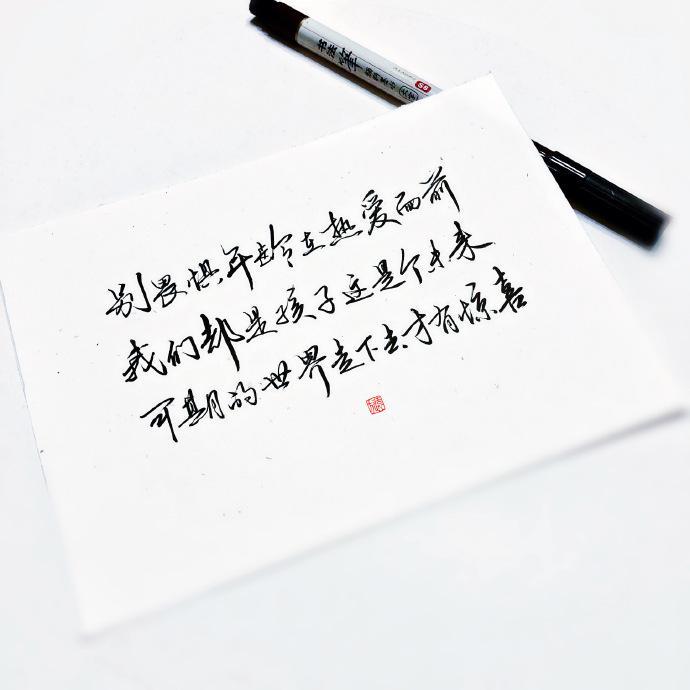 书法软笔
别畏惧年龄在热爱面前
我们都是孩子这是个未来
可期的世界走下去才有惊喜